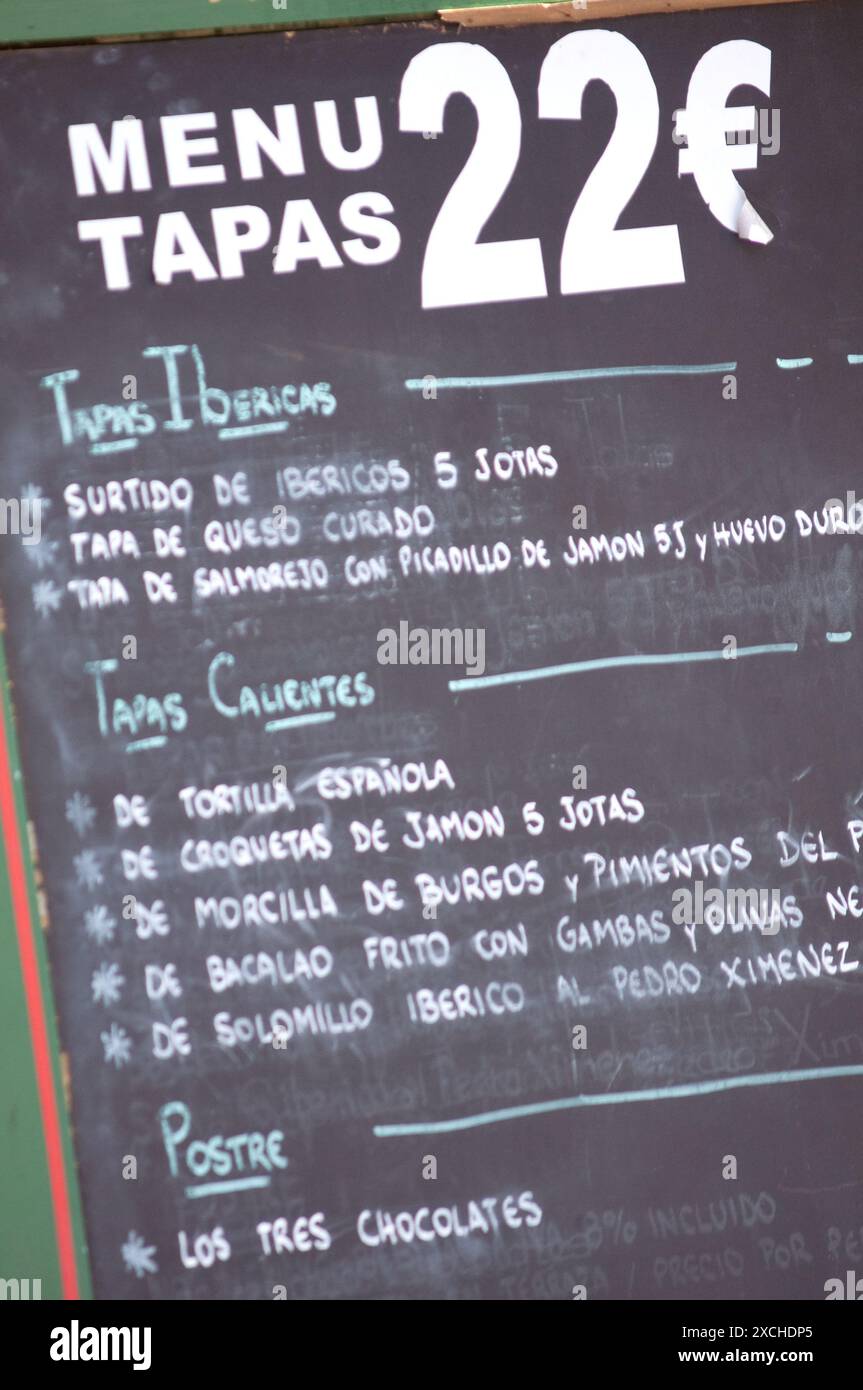 MENU
TAPAS
22€
TAPAS IBERICAS
* SURTIDO DE IBERICOS 5 JOTAS
* TAPA DE QUESO CURADO
* TAPA DE SALMOREJO CON PICADILLO DE JAMON 5J y HUEVO DURO
TAPAS CALIENTES
* DE TORTILLA ESPAÑOLA
* DE CROQUETAS DE JAMON 5 JOTAS
* DE MORCILLA DE BURGOS y PIMIENTOS DEL P
* DE BACALAO FRITO CON GAMBAS y OLIVAS NE
* DE SOLOMILLO IBERICO AL PEDRO XIMENEZ
POSTRE
* LOS TRES CHOCOLATES
8% INCLUIDO
TERRAZA / PRECIO POR PE
alamy
Image ID: 2XCHDP5
www.alamy.com